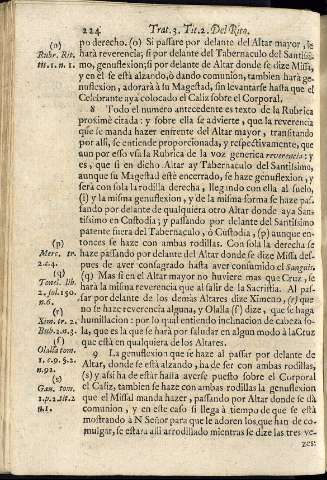 224 Trat. 3. Tit. 2. Del Rito.
(o)
Rubr. Rit.
tit. 1. n. 1.
po derecho. (o) Si passare por delante del Altar mayor, se
hará reverencia; si por delante del Tabernaculo del Santissi-
mo, genuflexion; si por delante de Altar donde se dize Missa,
y en él se está alzando, ò dando comunion, tambien hará ge-
nuflexion, adorará à su Magestad, sin levantarse hasta que el
Celebrante aya colocado el Caliz sobre el Corporal.
8 Todo el numero antecedente es texto de la Rubrica
proximè citada: y sobre ella se advierte, que la reverencia
que se manda hazer enfrente del Altar mayor, transitando
por allí, se entiende proporcionada, y respectivamente, que
aun por esso vsa la Rubrica de la voz generica reverencia: y
es, que si en dicho Altar ay Tabernaculo del Santissimo,
aunque su Magestad esté encerrado, se haze genuflexion, y
será con sola la rodilla derecha, llegando con ella al suelo,
(l) y la misma genuflexion, y de la misma forma se haze pas-
sando por delante de qualquiera otro Altar donde aya Sans
tissimo en Custodia; y passando por delante del Santissimo
patente fuera del Tabernaculo, ò Custodia, (p) aunque en-
tonces se haze con ambas rodillas. Con sola la derecha se
haze passando por delante del Altar donde se dize Missa des-
pues de aver consagrado hasta aver consumido el Sanguis
(q) Mas si en el Altar mayor no huviere mas que Cruz, se
hará la misma reverencia que al salir de la Sacristia. Al pas-
sar por delante de los demàs Altares dize Ximeno, (r) que
no se haze reverencia alguna, y Olalla (s) dize, que se haga
humillacion: por lo qual entiendo inclinacion de cabeza so-
la, que es la que se hará por saludar en algun modo à la Cruz
que està en qualquiera de los Altares.
(p)
Merc. tr.
2. 44.
(q)
Tonel. lib.
2. fol. 150.
n. 6.
(r)
Xim. tr. 2.
Rub. 2. n. 5.
(s)
Olalla tom.
1. c. 9. §. 2.
n. 92.
9 La genuflexion que se haze al passar por delante de
Altar, donde se està alzando, ha de ser con ambas rodillas,
(z) y assi ha de estàr hasta averse puesto sobre el Corporal
el Caliz, tambien se haze con ambas rodillas la genuflexion
que el Missal manda hazer, passando por Altar donde se dà
comunion, y en este caso si llega à tiempo de que se està
mostrando à N Señor para que le adoren los que han de co-
mulgar, se estará alli arrodillado mientras se dize las tres ve-
(z)
Gav. tom.
1. p. 2. tit. 2
n. 1.
zes: